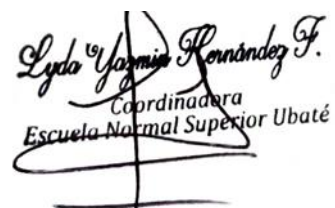 Lyda Yazmin Hernández F.
Coordinadora
Escuela Normal Superior Ubaté